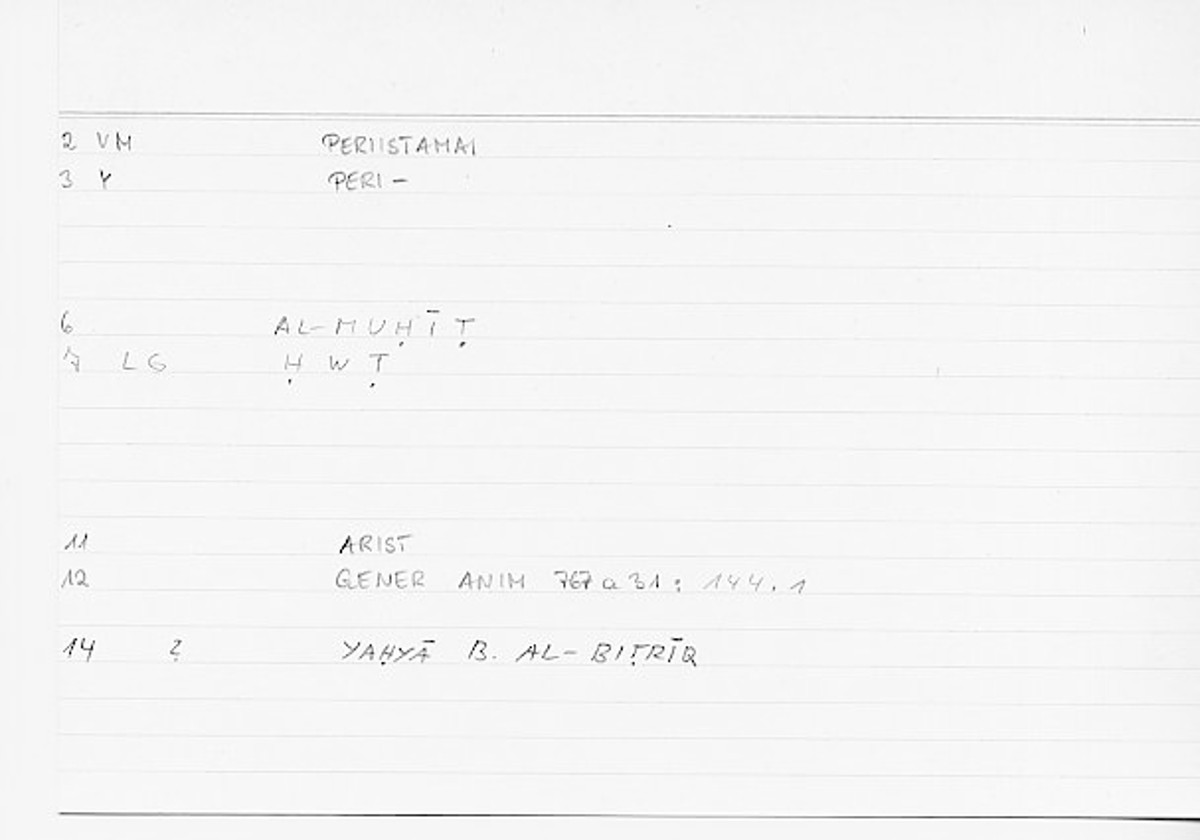 2 VM PERIISTAMAI
3 Y PERI-
6 AL-MUḤĪṬ
7 LG Ḥ W Ṭ
11 ARIST
12 GENER ANIM 767a31: 144.1
14 ? YAḤYĀ B. AL-BIṬRĪQ